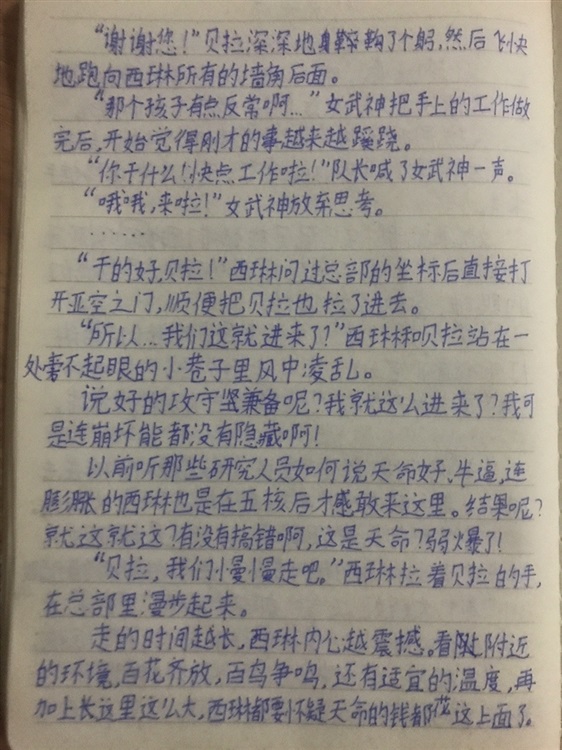 “谢谢您！”贝拉深深地鞠了个躬，然后飞快
地跑向西琳所有的墙角后面。
“那个孩子有点反常啊…”女武神把手上的工作做
完后，开始觉得刚才的事越来越蹊跷。
“你干什么！快点工作啦！”队长喊了女武神一声。
“哦哦，来啦！”女武神放弃思考。
……
“干的好，贝拉！”西琳问过总部的坐标后直接打
开亚空之门，顺便把贝拉也拉了进去。
“所以…我们这就进来了？”西琳和贝拉站在一
处毫不起眼的小巷子里风中凌乱。
说好的攻守坚兼备呢？我就这么进来了？我可
是连崩坏能都没有隐藏啊！
以前听那些研究人员如何说天命好，牛逼，连
膨胀的西琳也是在五核后才感敢来这里。结果呢？
就这就这？有没有搞错啊，这是天命？弱爆了！
“贝拉，我们慢慢走吧。”西琳拉着贝拉的手，
在总部里漫步起来。
走的时间越长，西琳内心越震撼。看附近
的环境，百花齐放，百鸟争鸣，还有适宜的温度，再
加上长这里这么大，西琳都要怀疑天命的钱都花这上面了。